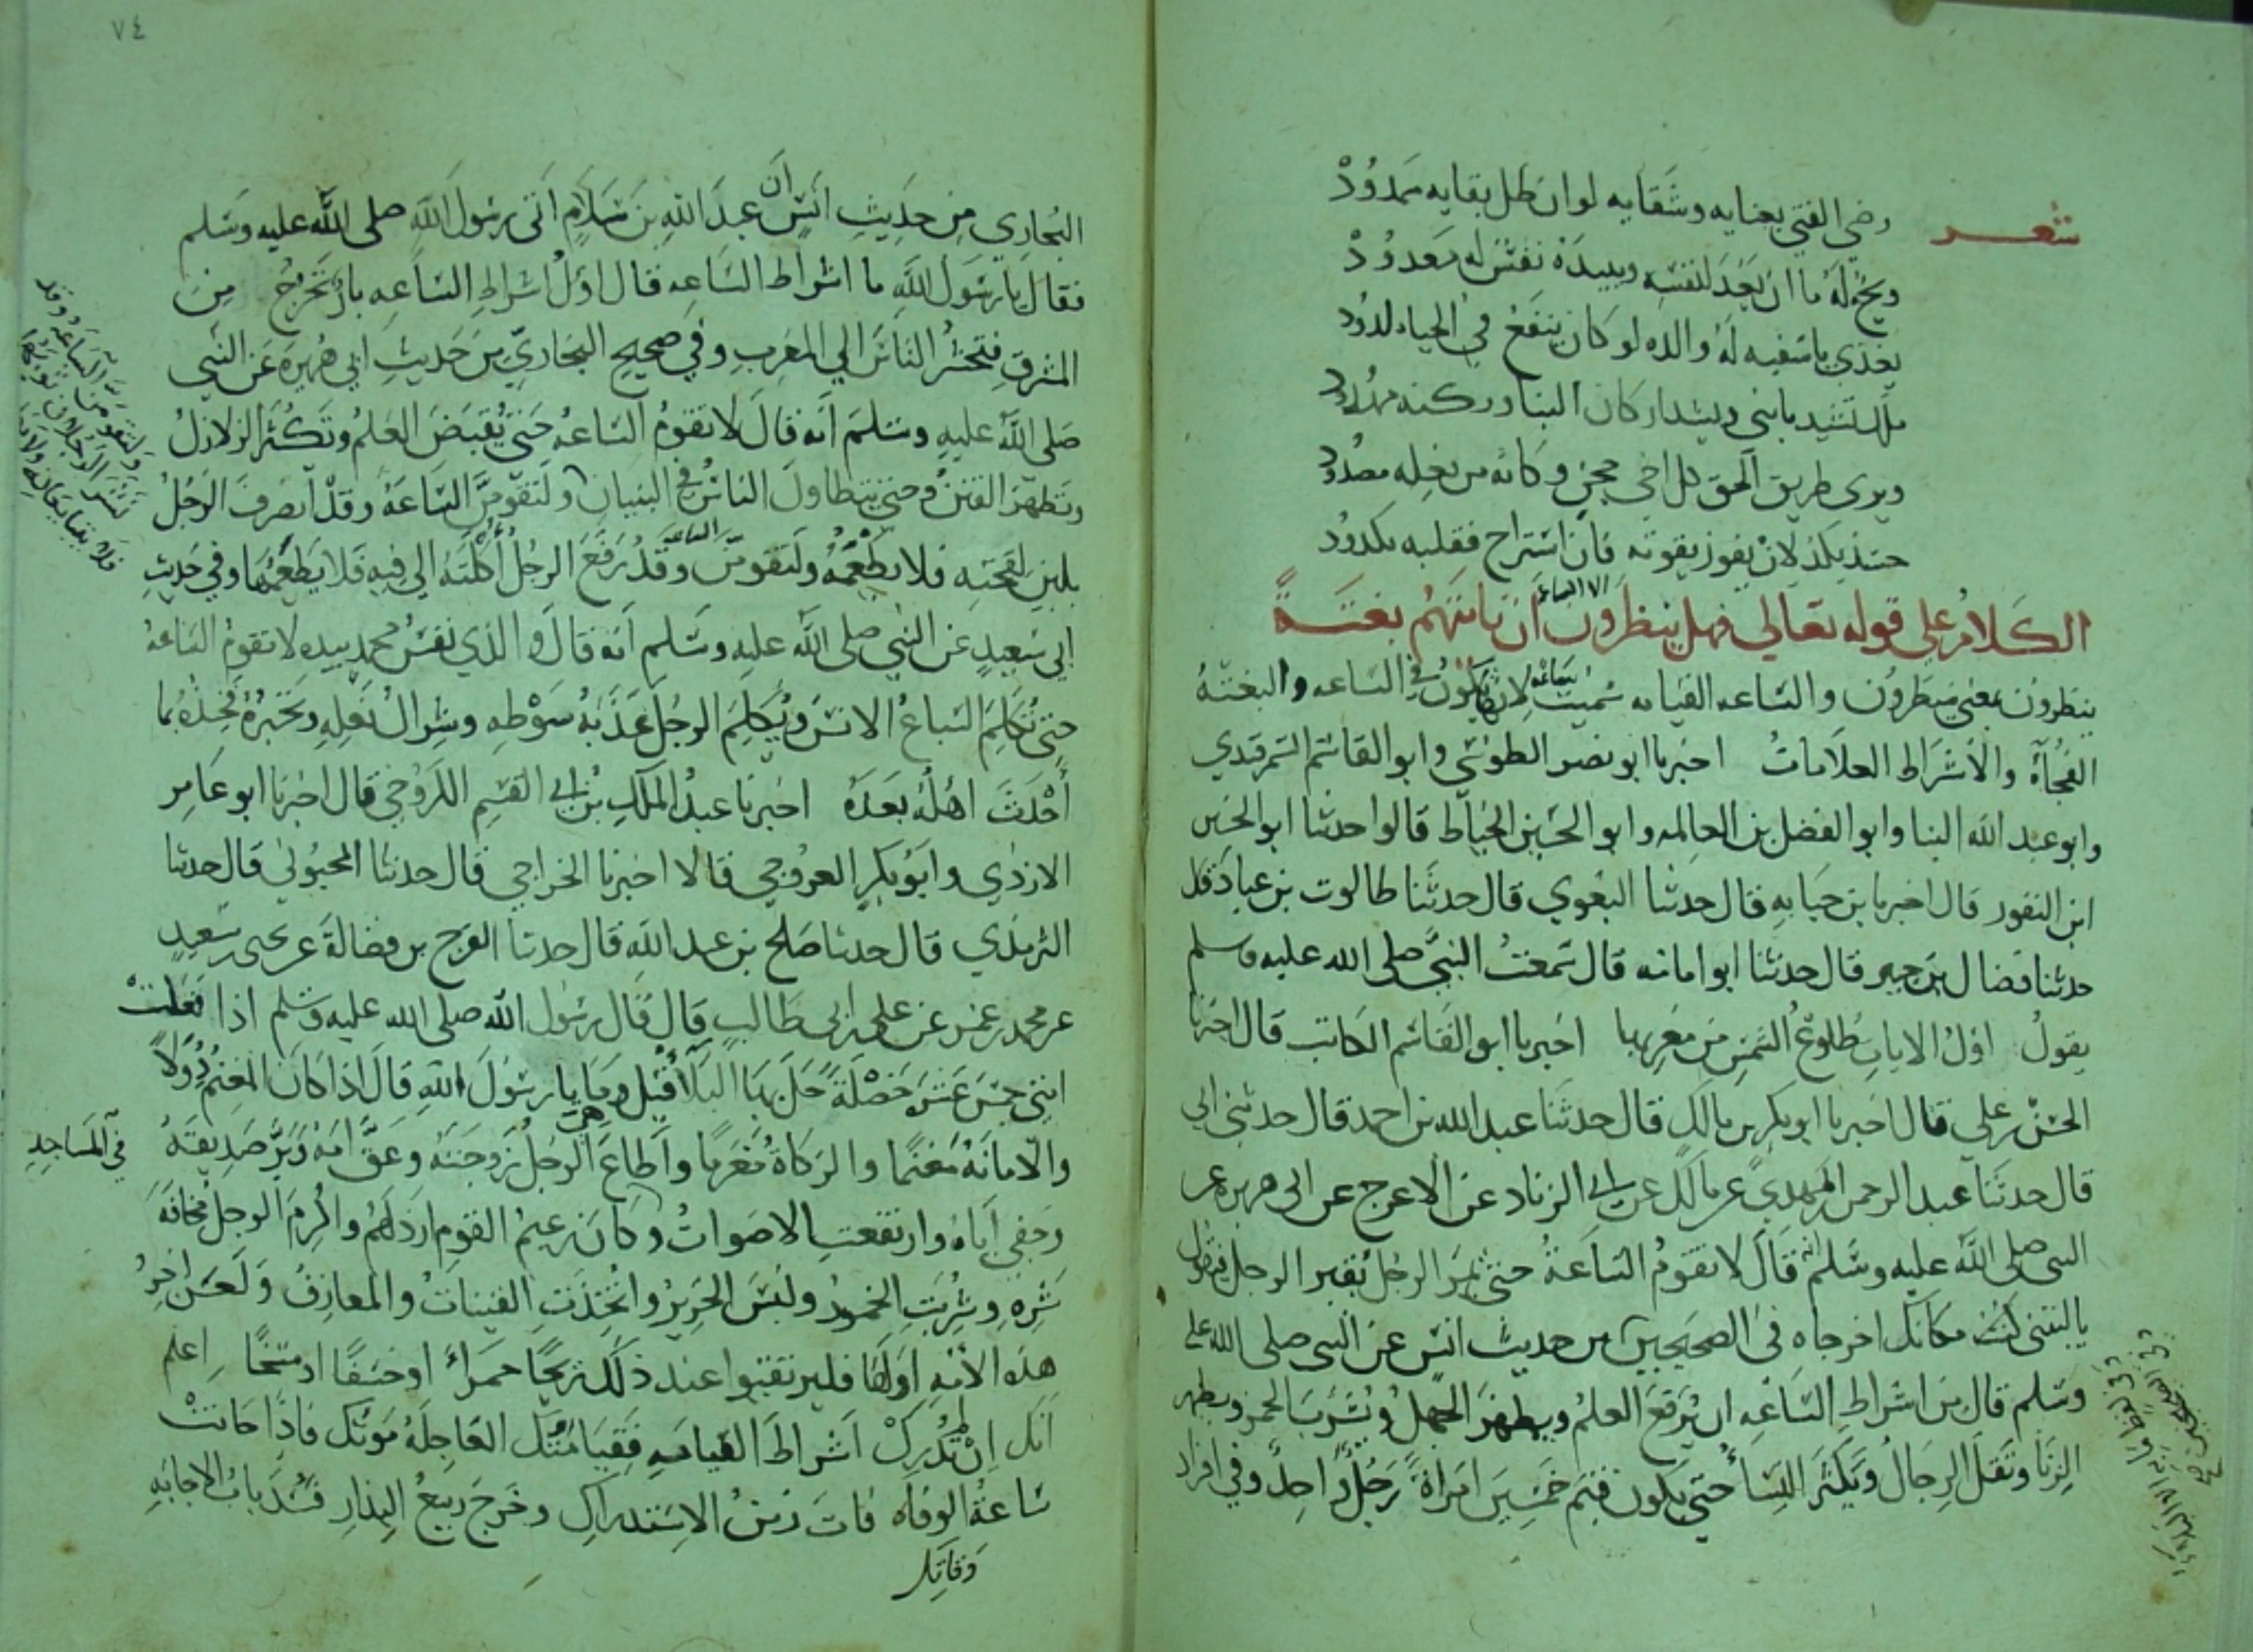 شعر
رضي الفتي بعنايه وشقايه لو ان طل بقايه ممدود
ما ان يعد لنفسه ويبيده نفس له معدود
يغذي باسفيه له والده لو كان ينفع في الحياه لدود
تشيد يابني كان البنا وركنه مهدود
ويري طريق الحق كل اخي حجي وكانه من بغله مصدود
لان يفوز بقوته فان استراح فقلبه مكدود
الكلام علي قوله تعالي فهل ينظرون الا الساعة ان تاتيهم بغتة
ينظرون بمعني ينتظرون والساعه القيامه سميت ساعه في الساعه والبغتة
الفجأة والاشراط العلامات اخبرنا ابو نصر الطوسي وابو القاسم السمرقندي
وابو عبد الله البنا وابو الفضل بن العالمه وابو الحسين الخياط قالوا حدثنا ابو الحسين
ابن النقور قال اخبرنا بن حبابه قال حدثنا البغوي قال حدثنا طالوت بن عباد قال
حدثنا فضال بن جبير قال حدثنا ابو امامه قال سمعت النبي صلي الله عليه وسلم
يقول اول الايات طلوع الشمس من مغربها اخبرنا ابو القاسم الكاتب قال اخبرنا
الحسن بن علي قال اخبرنا ابو بكر بن مالك قال حدثنا عبد الله بن احمد قال حدثني ابي
قال حدثنا عبد الرحمن المهدي عن مالك عن ابي الزناد عن الاعرج عن ابي هريره عن
النبي صلى الله عليه وسلم انه قال لا تقوم الساعة حتي يمر الرجل بقبر الرجل فيقول
ياليتني كنت مكانك اخرجاه في الصحيحين من حديث انس عن النبي صلي الله علي
وسلم قال من اشراط الساعه ان يرفع العلم ويظهر الجهل ويشرب الخمر ويظهر
الزنا وتقل الرجال ويكثر النسا حتي يكون قيم خمسين امراة رجل واحد وفي افراد
٧٤
البخاري من حديث انس ان عبد الله بن سلام اتي رسول الله صلى الله عليه وسلم
فقال يا رسول الله ما اشراط الساعه قال اول اشراط الساعه نار تخرج من
المشرق فتحشر الناس الي المغرب وفي صحيح البخاري من حديث ابي هريرة عن النبي
صلى الله عليه وسلم انه قال لا تقوم الساعه حتي يقبض العلم وتكثر الزلازل
وتظهر الفتن وحتي يتطاول الناس في البنيان ولتقومن الساعة وقد انصرف الرجل
بلبن لقحته فلا يطعمه ولتقومن الساعه وقد رفع الرجل أكلته الي فيه فلا يطعمها وفي حديث
ابي سعيد عن النبي صلى الله عليه وسلم انه قال والذي نفس محمد بيده لا تقوم الساعة
حتي تكلم السباع الانس ويكلم الرجل عذبة سوطه وشراك نعله وتخبره فخذه بما
أحدث اهله بعده اخبرنا عبد الملك بن ابي القسم الكروخي قال اخبرنا ابو عامر
الازدي وابو بكر الغورجي قالا اخبرنا الجراحي قال حدثنا المحبوبي قال حدثنا
الترمذي قال حدثنا صالح بن عبد الله قال حدثنا الفرج بن فضالة عن يحيى بن سعيد
عن محمد بن عمر عن علي بن ابي طالب قال قال رسول الله صلى الله عليه وسلم اذا فعلت
امتي خمس عشرة خصلة حل بها البلا قيل وما هي يا رسول الله قال اذا كان المغنم دولا
والامانة مغنما والزكاة مغرما واطاع الرجل زوجته وعق امه وبر صديقه
وجفي اباه وارتفعت الاصوات في المساجد وكان زعيم القوم ارذلهم واكرم الرجل مخافة
شره وشربت الخمور ولبس الحرير واتخذت القينات والمعازف ولعن اخر
هذه الأمة اولها فليرتقبوا عند ذلك ريحا حمراء او خسفا او مسخا اعلم
انك ان لم تدرك اشراط القيامه فقيامتك العاجله موتك فاذا حانت
ساعة الوفاه فات زمن الاستدراك وخرج ربيع البذار فسد باب الاجابه
وفاتك